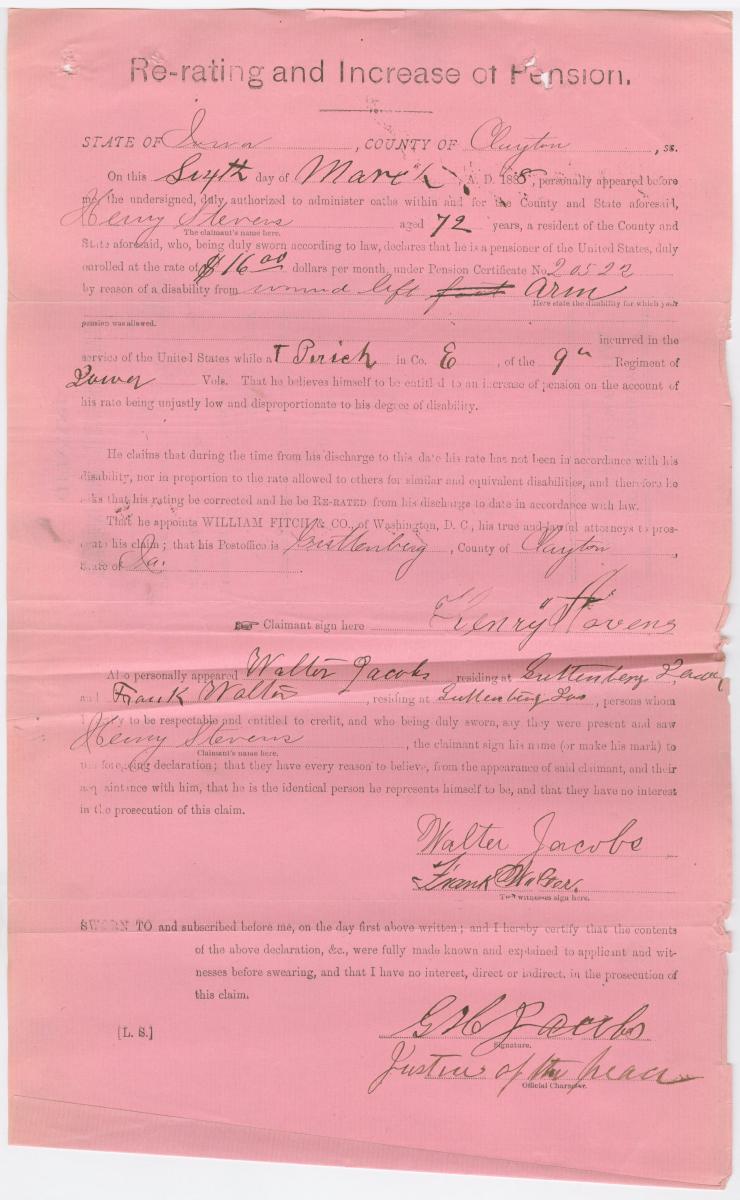 Re-rating and Increase of Pension.
STATE OF Iowa, COUNTY OF Clayton, ss.
On this Sixth day of March, A. D. 1888, personally appeared before
me, the undersigned, duly authorized to administer oaths within and for the County and State aforesaid,
Henry Stevens aged 72 years, a resident of the County and
The claimant's name here.
State aforesaid, who, being duly sworn according to law, declares that he is a pensioner of the United States, duly
enrolled at the rate of $16.00 dollars per month, under Pension Certificate No. 20522
by reason of a disability from wound left foot Arm
Here state the disability for which your
pension was allowed.
incurred in the
service of the United States while at in Co. E, of the 9th Regiment of
Iower Vols. That he believes himself to be entitled to an increase of pension on the account of
his rate being unjustly low and disproportionate to his degree of disability.
He claims that during the time from his discharge to this date his rate has not been in accordance with his
disability, nor in proportion to the rate allowed to others for similar and equivalent disabilities, and therefore he
asks that his rating be corrected and he be RE-RATED from his discharge to date in accordance with law.
That he appoints WILLIAM FITCH & CO., of Washington, D. C., his true and lawful attorneys to pros-
ecute his claim; that his Postoffice is Guttenberg, County of Clayton,
State of Ia.
Claimant sign here Henry Stevens
Also personally appeared Walter Jacobs, residing at Guttenberg Iowa
and Frank Walter, residing at Guttenberg Iow, persons whom
I certify to be respectable and entitled to credit, and who being duly sworn, say they were present and saw
Henry Stevens, the claimant sign his name (or make his mark) to
Claimant's name here.
the foregoing declaration; that they have every reason to believe, from the appearance of said claimant, and their
acquaintance with him, that he is the identical person he represents himself to be, and that they have no interest
in the prosecution of this claim.
Walter Jacobs
Frank Walter.
Two witnesses sign here.
SWORN TO and subscribed before me, on the day first above written; and I hereby certify that the contents
of the above declaration, &c., were fully made known and explained to applicant and wit-
nesses before swearing, and that I have no interest, direct or indirect, in the prosecution of
this claim.
[L. S.]
G H Jacobs
Signature.
Justice of the peace
Official Character.